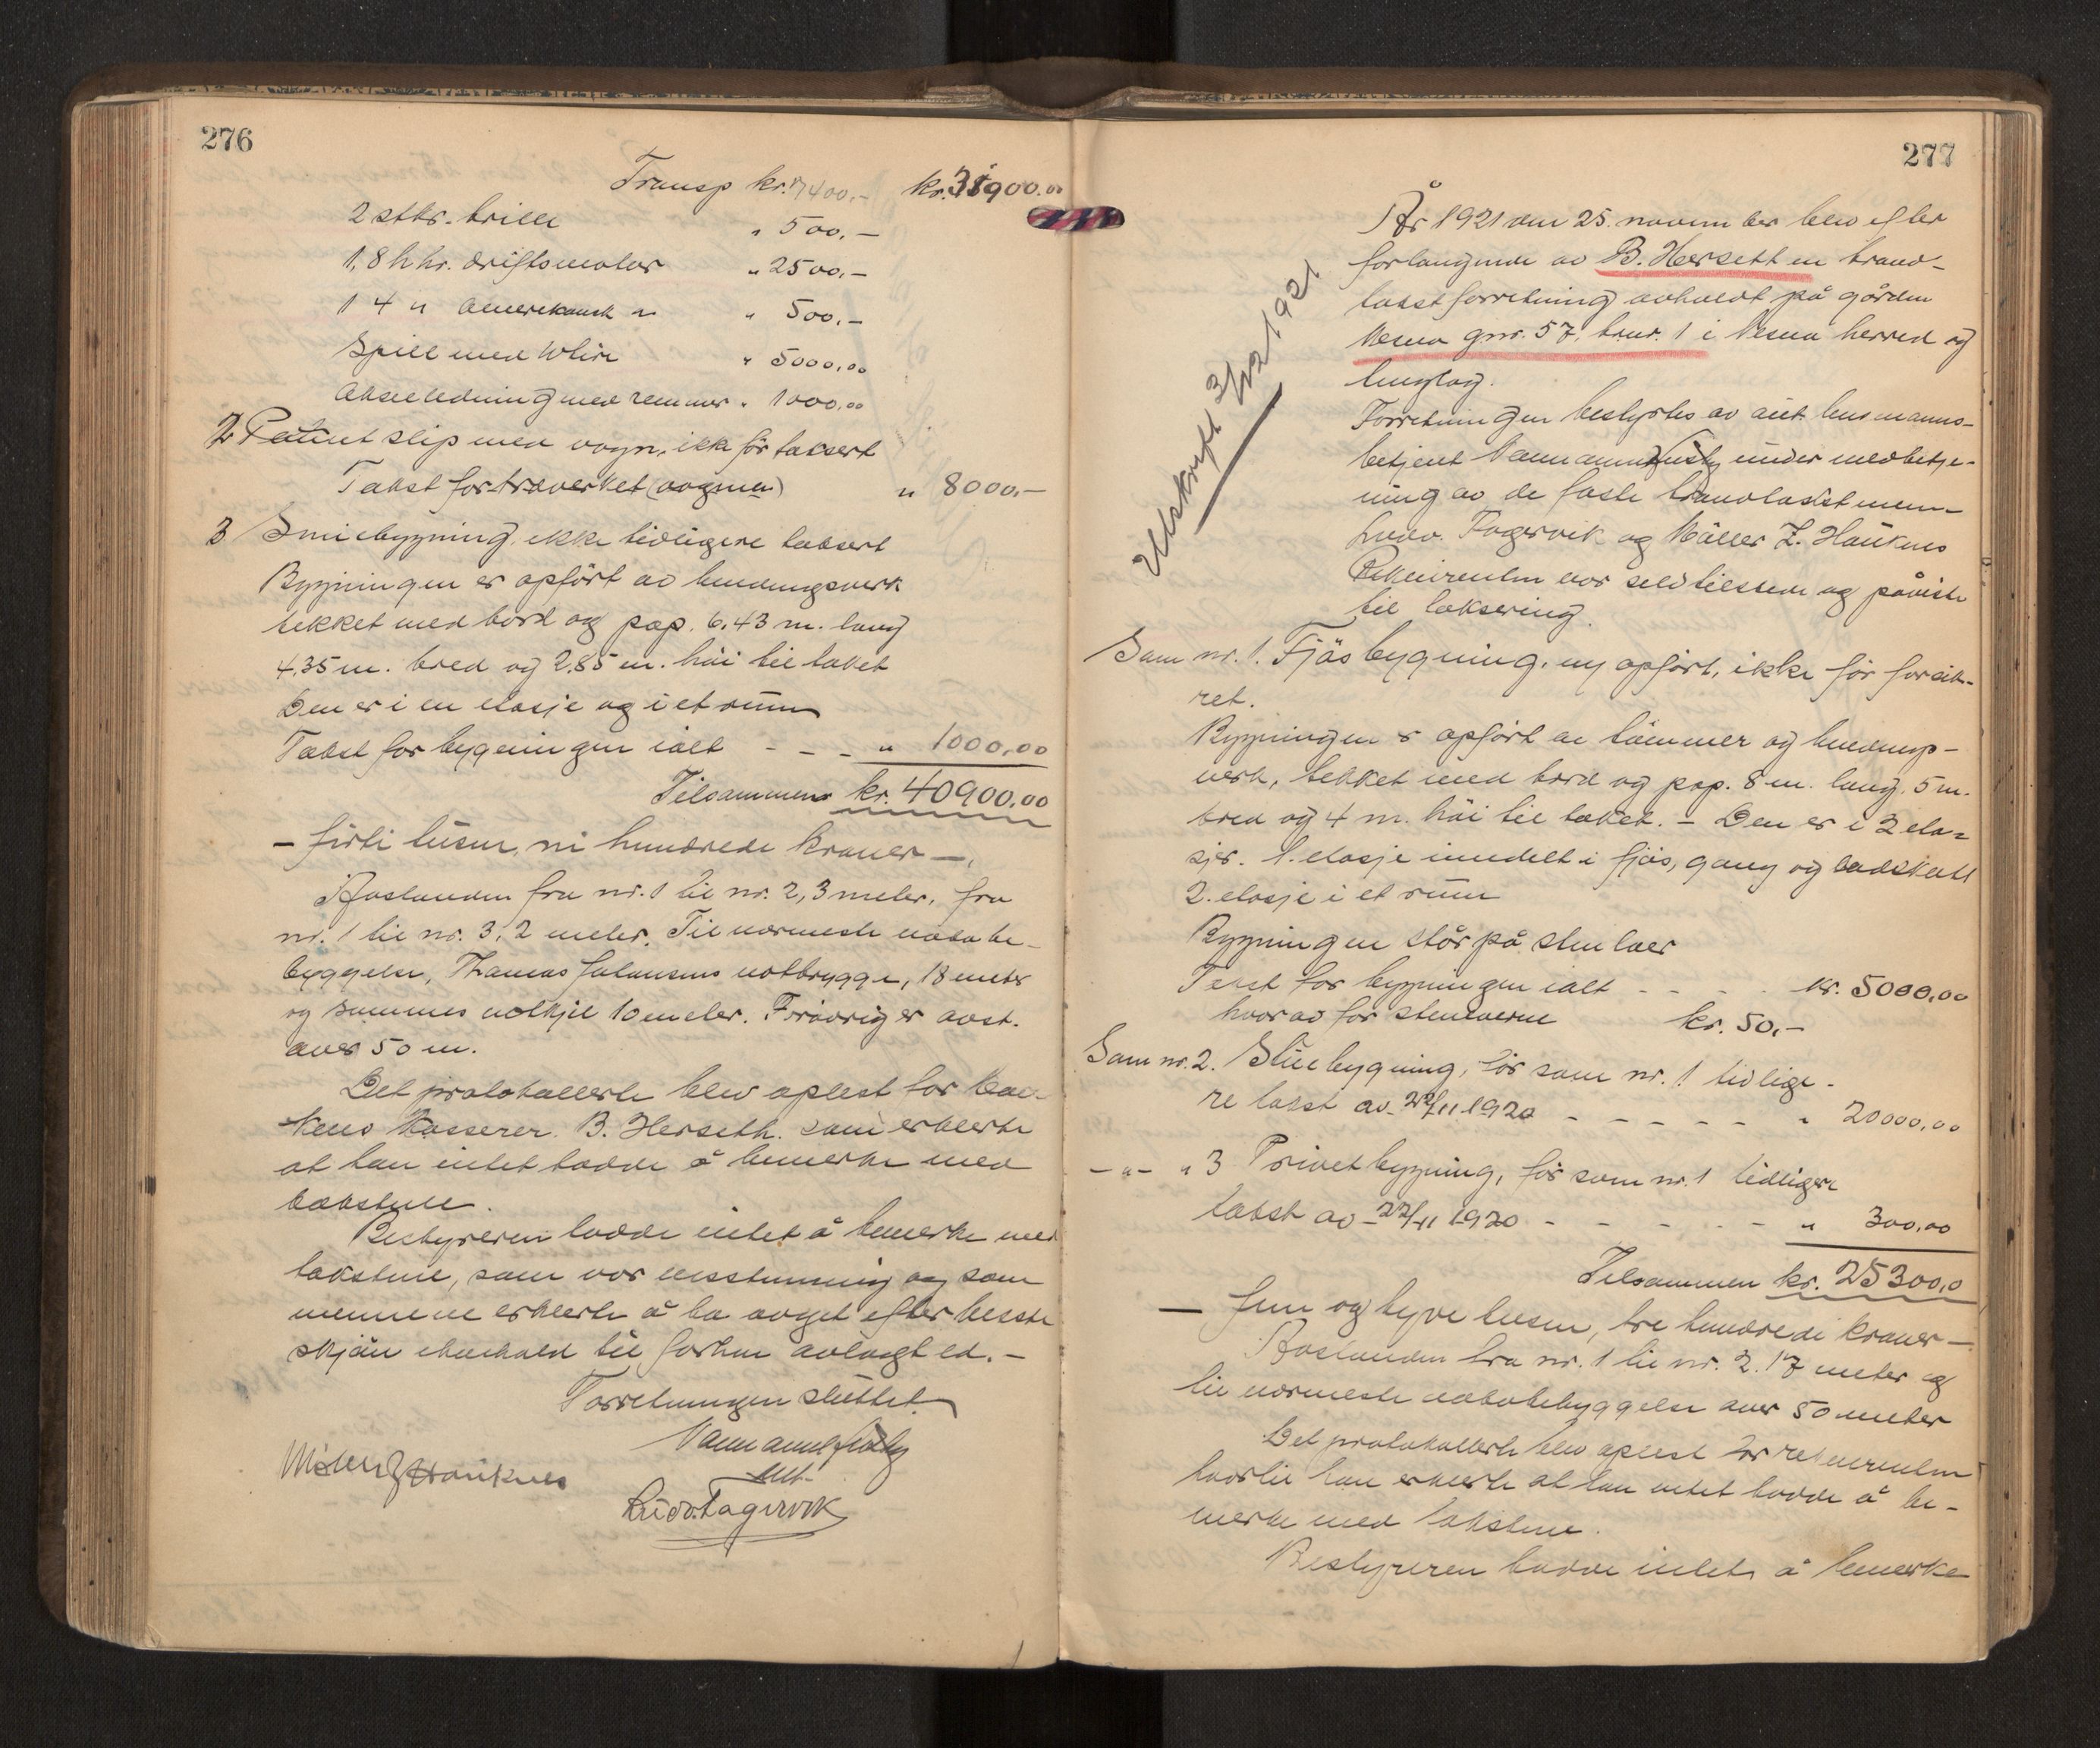 276
Transp kr. 7400.- kr. 31900.00
2 stkr. brille " 500.-
1, 8 h kr. driftsmotor " 2500.-
1 4 " amerikansk " " 500.-
Spill med Wire " 5000.00
Akselledning med remmer " 1000.00
2 Patent slip med vogn, ikke før taksert
Takst for træverket (vognen) " 8000.-
3 Smiebygning, ikke tidligere taksert
Bygningen er opført av bindingsverk
tekket med bord og pap. 6,43 m. lang
4,35 m. bred og 2,85 m. høi til taket
Den er i en etasje og i et rum
Takst for bygningen ialt - - - " 1000.00
Tilsammen kr. 40900.00
- førti tusen, ni hundrede kroner -.
Avstanden fra nr. 1 til nr. 2, 3 meter, fra
nr. 1 til nr. 3, 2 meter. Til nærmeste nabobe-
byggelse, Thomas Johansens notbrygge, 18 meter
og sammes notkjel 10 meter. Forøvrig er avst.
over 50 m.
Det protokollerte blev oplest for ban-
kens kasserer B. Herseth som erklærte
at han intet hadde å bemerke med
takstene.
Bestyreren hadde intet å bemerke med
takstene, som var enstemmig og som
mennene erklærte å ha avget efter beste
skjøn i henhold til forhen avlagt ed. -
Forretningen sluttet.
Møller Z Hauknes
Ludv. Fagervik
277
År 1921 den 25. november blev efter
forlangende av B. Hersett en brand-
takstforretning avholdt på gården
Nesna gnr. 57, brnr. 1 i Nesna herred og
tinglag.
Utskrift 3/12 1921
Forretningen bestyrtes av aut. lensmanns-
betjent under medbetje-
ning av de faste brandtakstmenn
Ludv. Fagervik og Møller Z. Hauknes
Rekvirenten var selv tilstede og påviste
til taksering.
Som nr. 1. Fjøsbygning, ny opført, ikke før forsik-
ret.
Bygningen er opført av tømmer og bindings-
verk, tekket med bord og pap. 8 m. lang, 5 m.
bred og 4 m. høi til taket. - Den er i 2 eta-
sjer. 1. etasje inndelt i fjøs, gang og vedskott
2. etasje i et rum
Bygningen står på stenlaer
Takst for bygningen ialt - - - - kr. 5000.00
hvorav for stenlaerne kr. 50.-
Som nr. 2. Stuebygning, før som nr. 1 tidlige-
re takst av 22/11 1920 - - - - - " 20000.00
- " - " 3 Privetbygning, før som nr. 1 tidligere
takst av 22/11 1920 - - - - - " 300.00
Tilsammen kr. 25300.0
- fem og tyve tusen, tre hundrede kroner -
Avstanden fra nr. 1 til nr. 2. 17 meter og
til nærmeste nabobebyggelse over 50 meter
Det protokollerte blev oplest for rekvirenten
hvortil han erklærte at han intet hadde å be-
merke med takstene.
Bestyreren hadde intet å bemerke